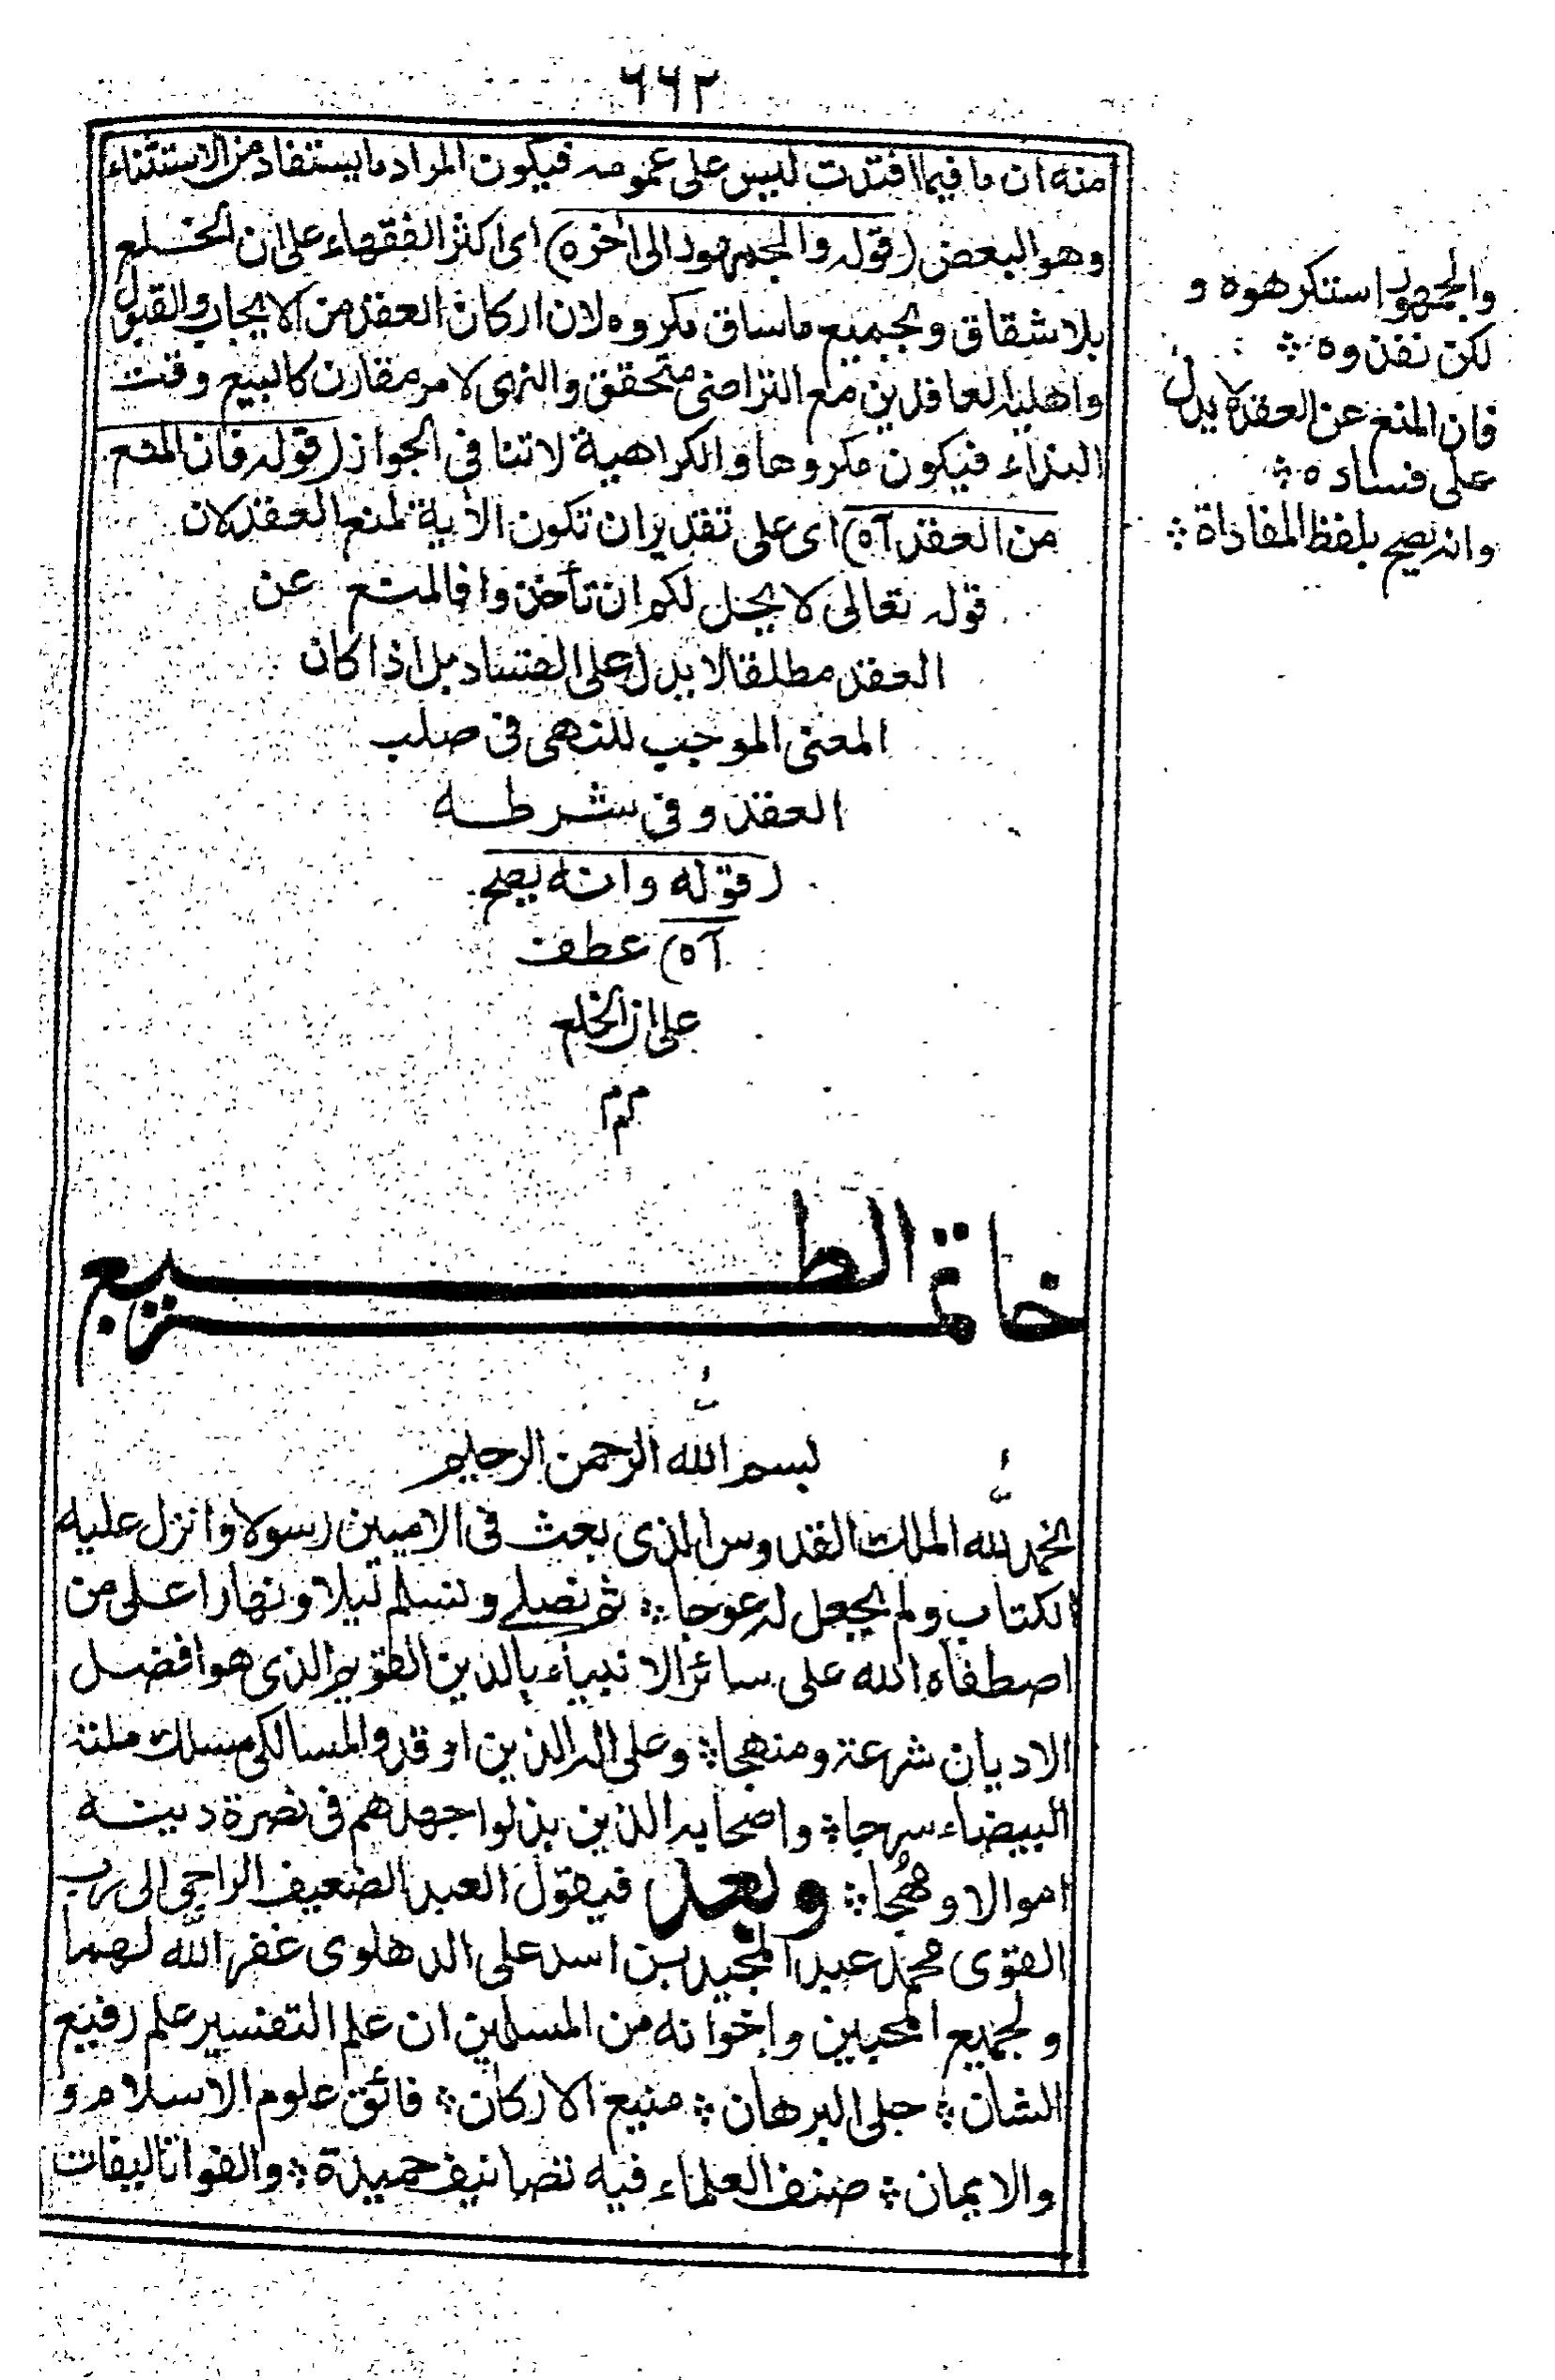 ٦٦٢
منه ان ما فيما افتدت ليس على عمومه فيكون المراد ما يستفاد من الاستثناء
وهو البعض (قوله والجمهور الى آخره) اى اكثر الفقهاء على ان الخلع
بلا شقاق وبجميع ما ساق مكروه لان اركان العقد من الايجاب والقبول
واهلية العاقدين مع التراضى متحقق والنهى لامر مقارن كالبيع وقت
النداء فيكون مكروها والكراهية لا تنافى الجواز (قوله فان المنع
من العقد آه) اى على تقدير ان تكون الأية لمنع العقد لان
قوله تعالى لا يحل لكم ان تأخذوا فالمنع عن
العقد مطلقا لا يدل على الفساد بل اذا كان
المعنى الموجب للنهى فى صلب
العقد وفى شرطه
(قوله وانه يصح
آه) عطف
على ان الخلع
والجمهور استكرهوه و
لكن نفذوه
فان المنع عن العقد لا يدل
على فساده
وانه يصح بلفظ المفاداة
خاتمة الطبع
بسم الله الرحمن الرحيم
الحمد لله الملك القدوس الذى بعث فى الاميين رسولا وانزل عليه
الكتاب ولم يجعل له عوجا ؞ ثم نصلے ونسلم ليلا ونهارا على من
اصطفاه الله على سائر الانبياء بالدين القويم الذى هو افضل
الاديان شرعة ومنهجا ؞ وعلى اله الذين اوقدوا لمسالكى مسلك ملته
البيضاء سرجا ؞ واصحابه الذين بذلوا جهدهم فى نصرة دينه
اموالا ومهجا ؞ وبعد فيقول العبد الضعيف الراجى الى رب
القوى محمد عبد المجيد بن اسد على الدهلوى غفر الله لهما
ولجميع المحبين واخوانه من المسلمين ان علم التفسير علم رفيع
الشان ؞ جلى البرهان ؞ منيع الاركان ؞ فائق علوم الاسلام و
والايمان ؞ صنف العلماء فيه تصانيف حميدة ؞ والفوا تاليفات